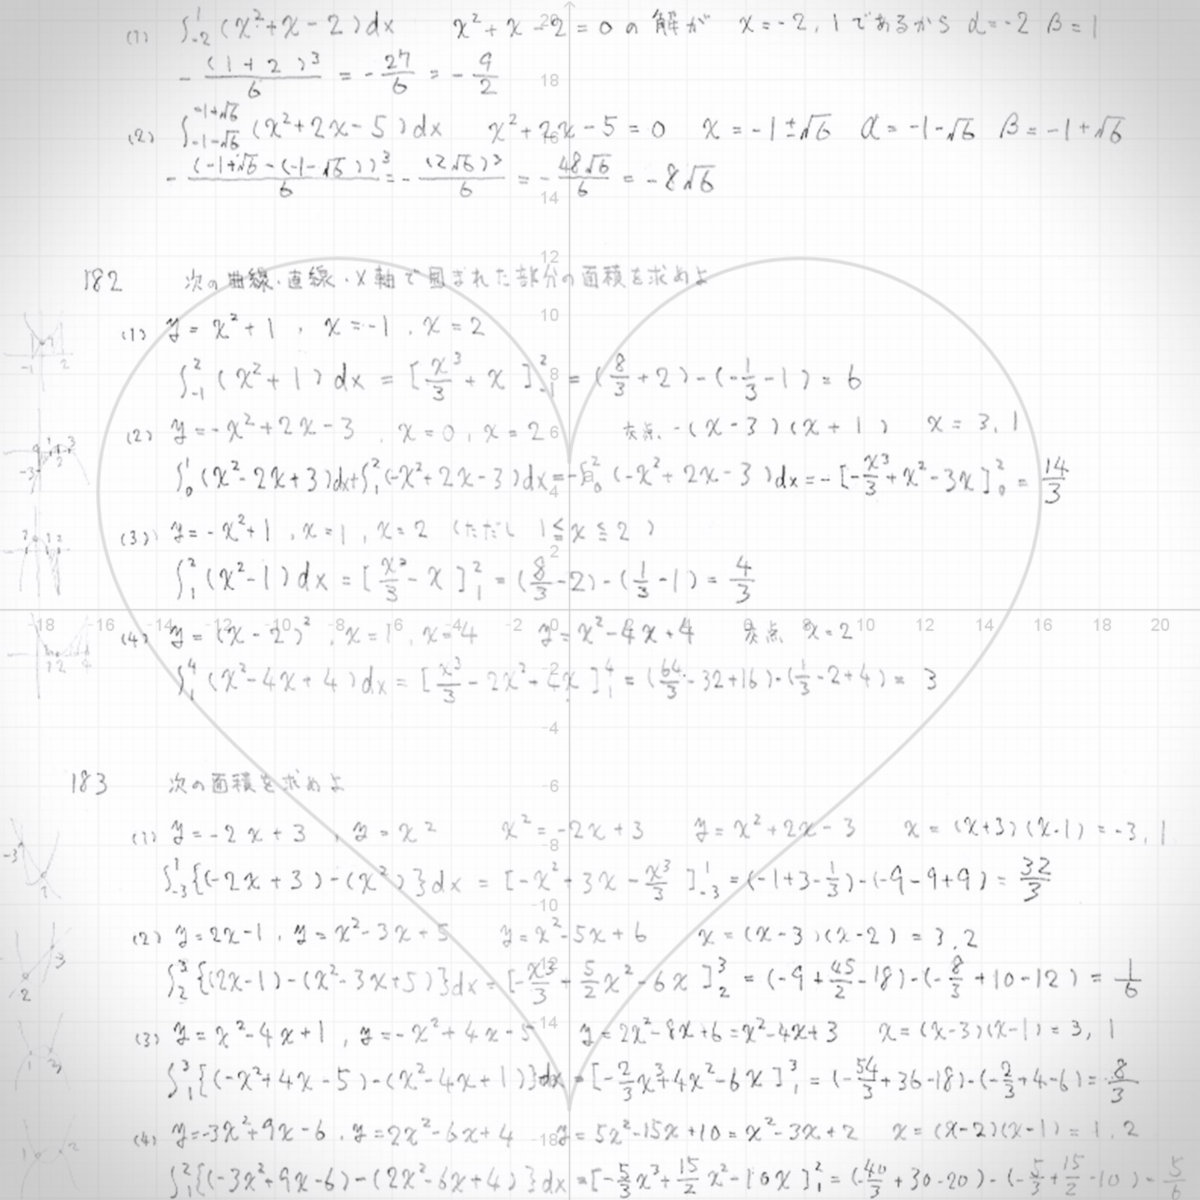 (1) ∫₋₂¹ (x²+x-2)dx x²+x-2=0の解が x=-2, 1であるから α=-2 β=1
-(1+2)³/6 = -27/6 = -9/2
(2) ∫_{-1-√6}^{-1+√6} (x²+2x-5)dx x²+2x-5=0 x=-1±√6 α=-1-√6 β=-1+√6
-(-1+√6-(-1-√6))³/6 = -(2√6)³/6 = -48√6/6 = -8√6
182 次の曲線・直線・x軸で囲まれた部分の面積を求めよ
(1) y=x²+1, x=-1, x=2
∫₋₁² (x²+1)dx = [x³/3+x]₋₁² = (8/3+2)-(-1/3-1) = 6
(2) y=-x²+2x-3, x=0, x=2 交点 -(x-3)(x+1) x=3, 1
∫₀¹(x²-2x+3)dx+∫₁²(-x²+2x-3)dx=-∫₀²(-x²+2x-3)dx=-[-x³/3+x²-3x]₀² = 14/3
(3) y=-x²+1, x=1, x=2 (ただし 1≦x≦2)
∫₁² (x²-1)dx = [x³/3-x]₁² = (8/3-2)-(1/3-1) = 4/3
(4) y=(x-2)², x=1, x=4 y=x²-4x+4 交点 x=2
∫₁⁴ (x²-4x+4)dx = [x³/3-2x²+4x]₁⁴ = (64/3-32+16)-(1/3-2+4) = 3
183 次の面積を求めよ
(1) y=-2x+3, y=x² x²=-2x+3 y=x²+2x-3 x=(x+3)(x-1)=-3, 1
∫₋₃¹{(-2x+3)-(x²)}dx = [-x²+3x-x³/3]₋₃¹ = (-1+3-1/3)-(-9-9+9) = 32/3
(2) y=2x-1, y=x²-3x+5 y=x²-5x+6 x=(x-3)(x-2)=3, 2
∫₂³{(2x-1)-(x²-3x+5)}dx = [-x³/3+5/2x²-6x]₂³ = (-9+45/2-18)-(-8/3+10-12) = 1/6
(3) y=x²-4x+1, y=-x²+4x-5 y=2x²-8x+6=x²-4x+3 x=(x-3)(x-1)=3, 1
∫₁³{(-x²+4x-5)-(x²-4x+1)}dx=[-2/3x³+4x²-6x]₁³ = (-54/3+36-18)-(-2/3+4-6)=8/3
(4) y=-3x²+9x-6, y=2x²-6x+4 y=5x²-15x+10=x²-3x+2 x=(x-2)(x-1)=1, 2
∫₁²{(-3x²+9x-6)-(2x²-6x+4)}dx=[-5/3x³+15/2x²-10x]₁²=(-40/3+30-20)-(-5/3+15/2-10)=5/6
20
18
16
14
12
10
8
6
4
2
-18 -16 -14 -12 -10 -8 -6 -4 -2 2 4 6 8 10 12 14 16 18 20
-2
-4
-6
-8
-10
-12
-14
-18